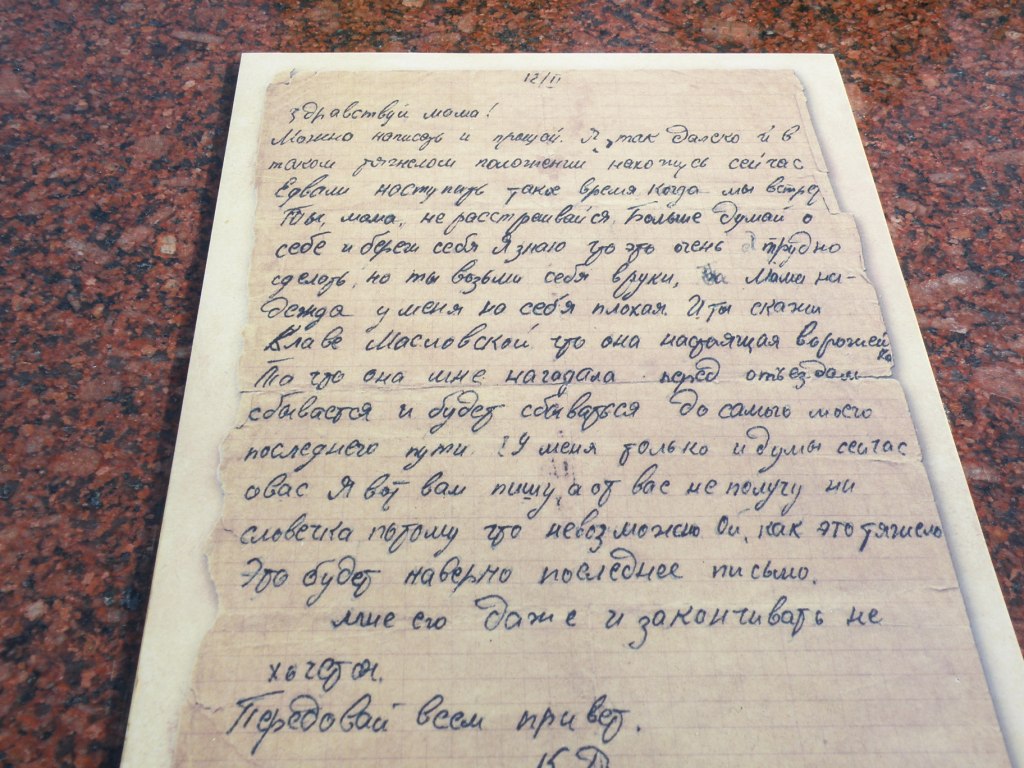 12/II
Здравствуй мама!
Можно написать и прощай. Я так далеко и в
таком тягнелом положении нахожусь сейчас
Едвали наступить такое время когда мы встред
Ты, мама, не расстреивайся. Больше думай о
себе и береги себя Я знаю что это очень трудно
сделать, но ты возьми себя вруки, Мама на-
дежда у меня на себя плохая. И ты скажи
Клаве Масловской что она настоящая ворожей
ка
То что она мне нагадала перед отъездам
сбывается и будет сбываться до самого моего
последнего пути. У меня только и думы сейчас
овас Я вот вам пишу, а от вас не получу ни
словечка потому что невозможно Ой, как это тяжело
Это будет наверно последнее письмо.
Мне его даже и заканчивать не
хочется.
Передовай всем привет.